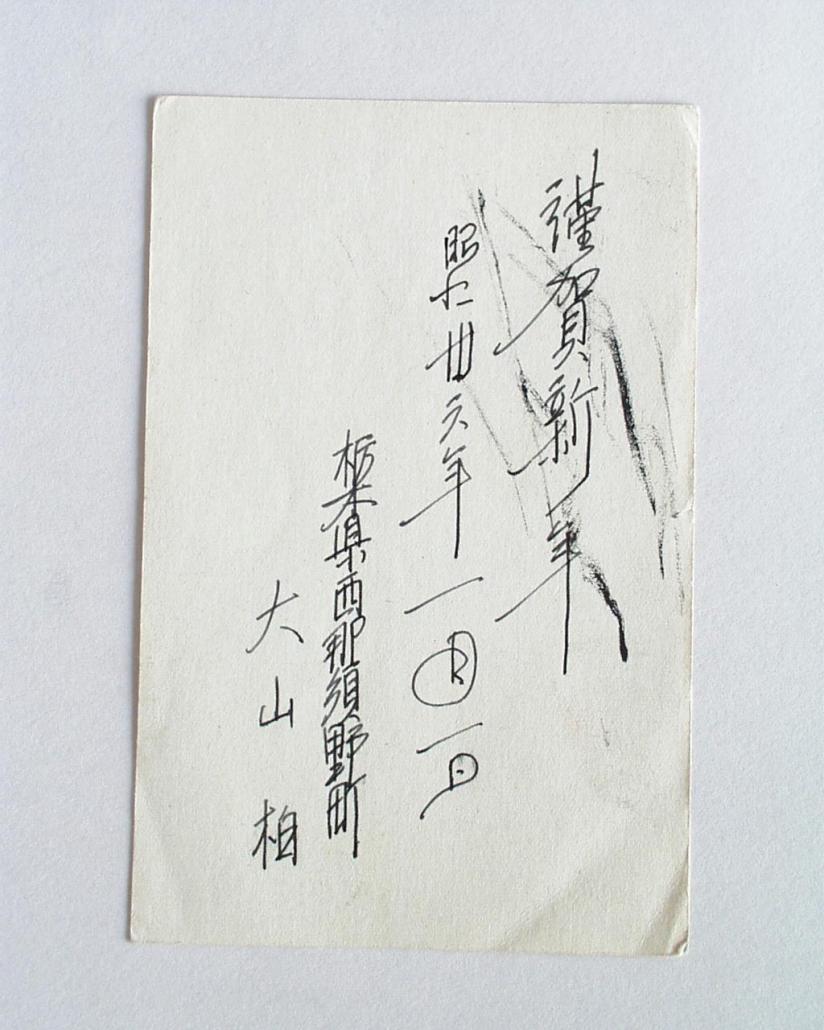 謹賀新年
昭和卅六年一月一日
栃木県西那須野町
大山柏